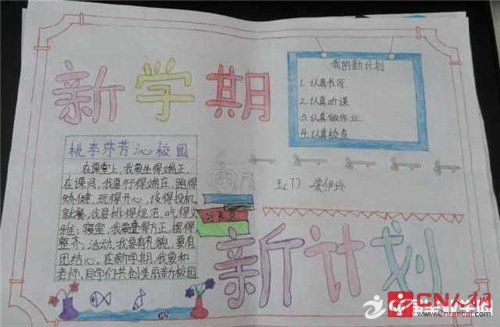 新学期
我的新计划
1.认真书写
2.认真听课
3.认真做作业
4.认真检查
桃李芬芳沁校园
在课堂上,我要坐得端正,
在课间,我要行得端庄,跑得
矫健,玩得开心,谈得投机
就餐,我要排得规范,吃得文
雅;寝室,我要叠得方正,摆得
整齐;活动,我要有礼貌,要有
团结心。在新学期,我要和
老师、同学们共创美丽新校园
新计划
CN人才网
www.Cnrencai.com